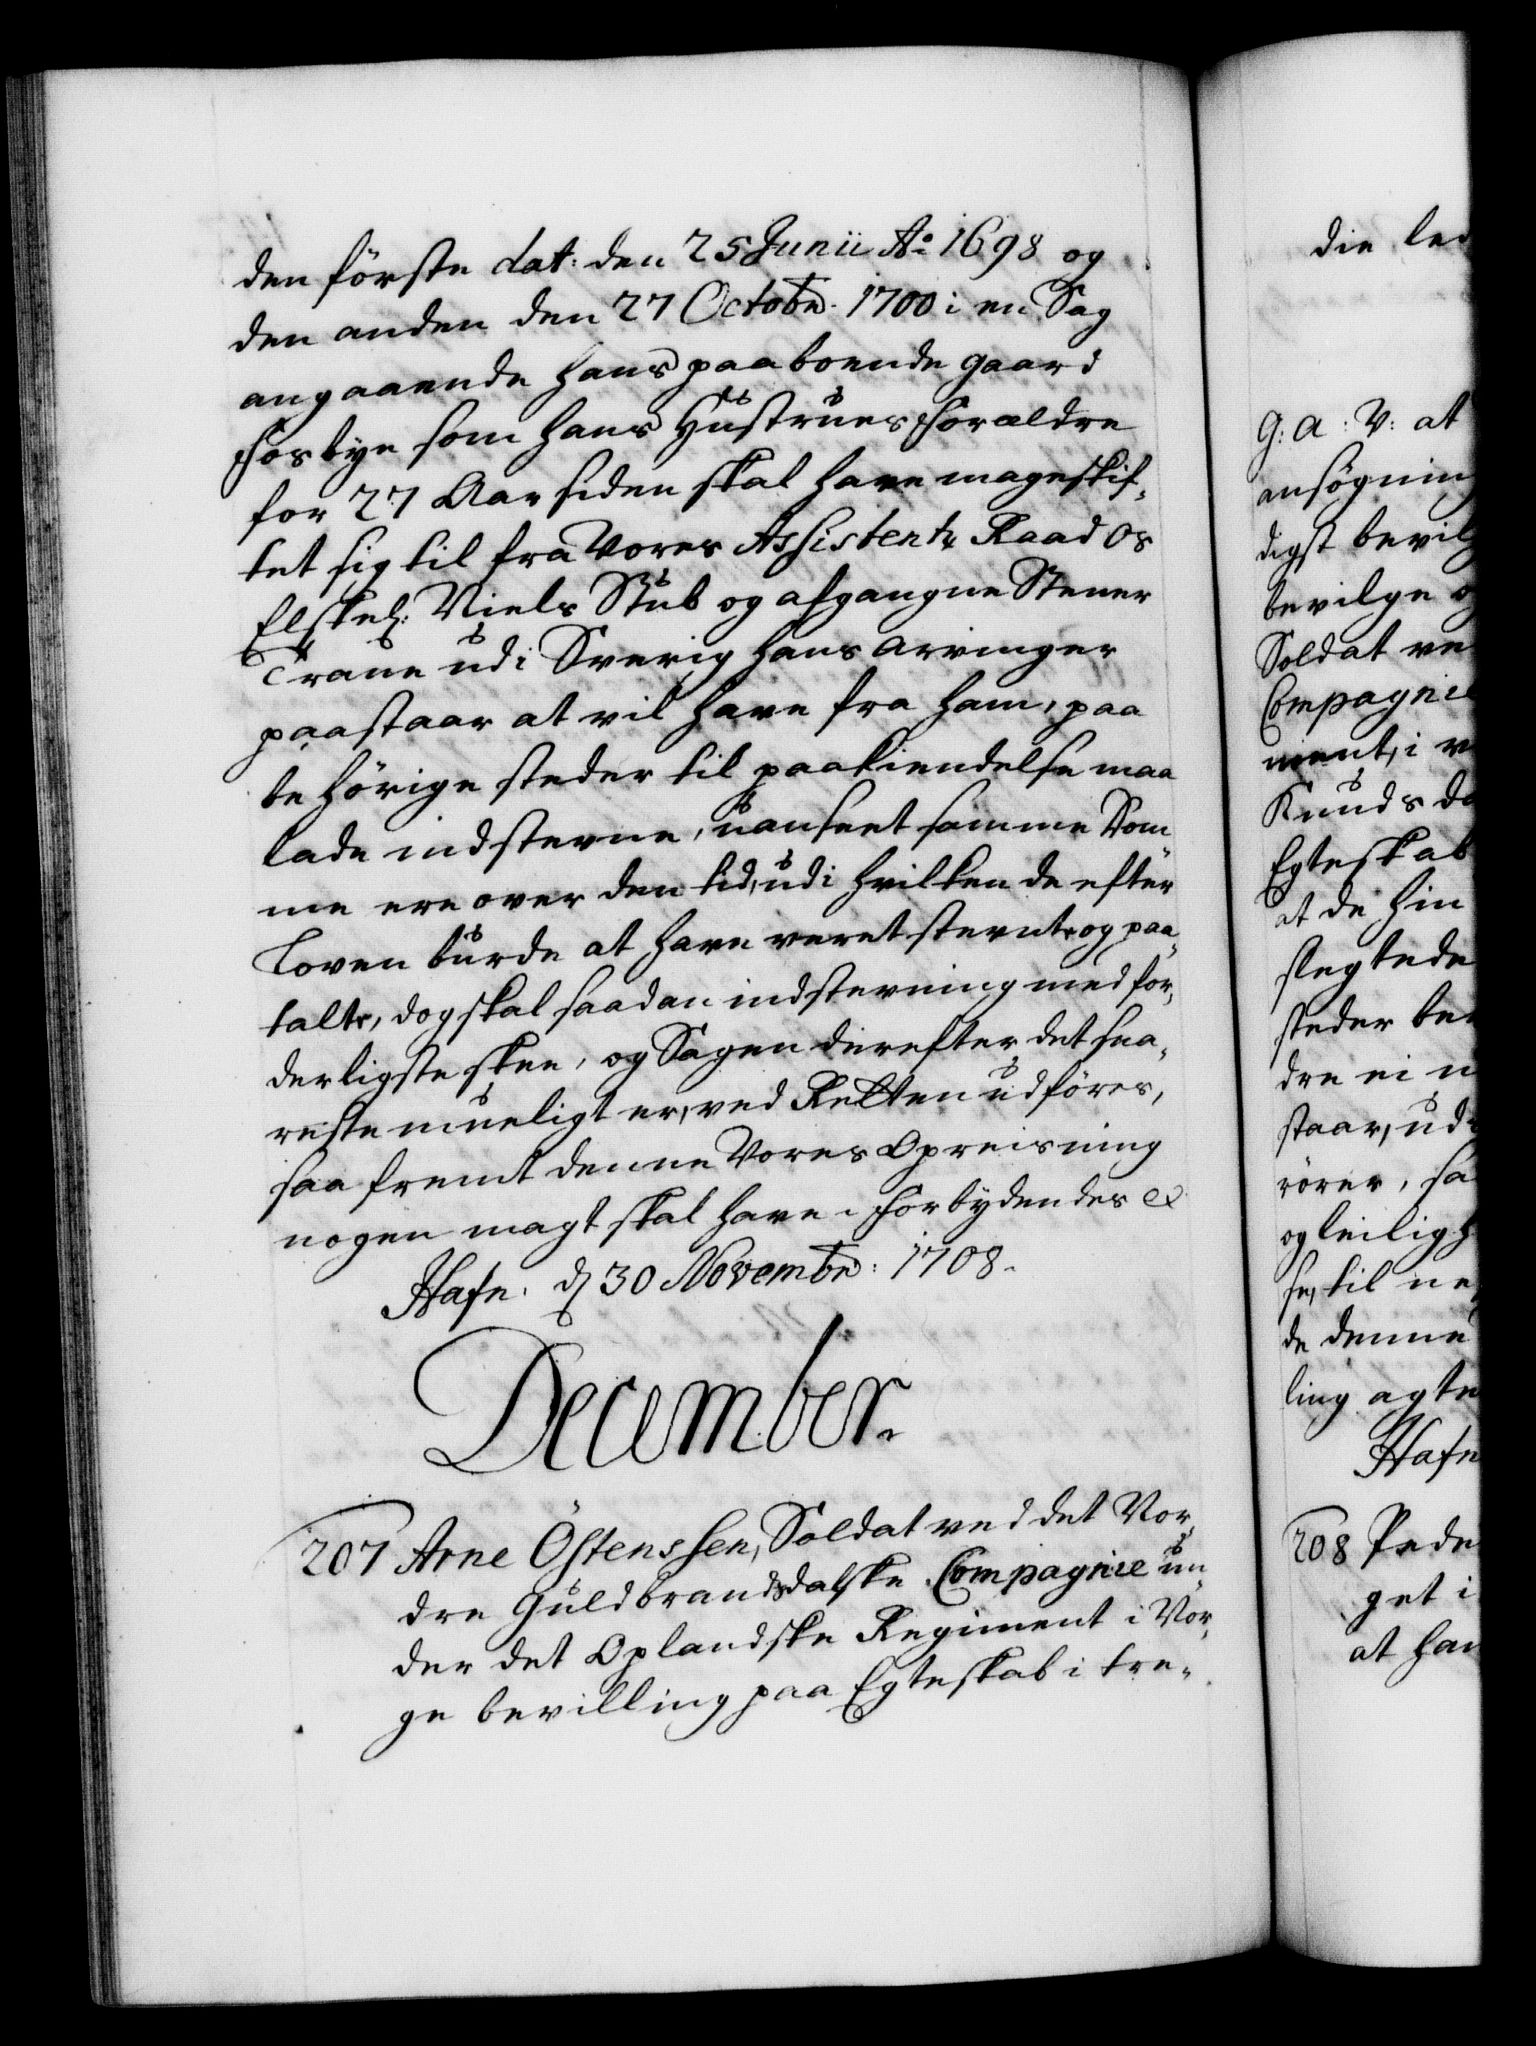 den förste dat: den 25 Junii Ao 1698 og
den anden den 27 Octobr. 1700 i en Sag
angaaende hans paaboende gaard
Fosbye som hans Hustrues Forældre
for 27 Aar siden skal have mageskif-
tet sig til fra Vores Assistentz Raad Os
Elskel: Niels Stub og afgangne Stener
Trane udi Sverig hans arvinger
paastaar at vil have fra ham, paa
behörige steder til paakiendelse maa
lade indstevne, uanseet samme Dom-
me ere over den tid, udi hvilken de efter
Loven burde at have veret stevnte og paa-
talte, dog skal saadan indstevning med for-
derligste skee, og Sagen derefter det saa-
reste mueligt er, ved Retten udföres,
saa fremt denne Vores Opreisning
nogen magt skal have. Forbydendes &
Hafn. d 30 Novembr: 1708.
December.
207 Arne Östenssen, Soldat ved det Nor-
dre Guldbrandsdalske Compagnie un-
der det Oplandske Regiment i Nor-
ge bevilling paa Egteskab i tre-
die led
G: A: V: at
ansögning
digst bevilg
bevilge og
Soldat ve
Compagnie
ment, i
Knuds da
Egteskab
at de hin
slegtede
steder be
dre ei
staar, ud
rörer, sa
og leiligh
se, til ne
de denne
ling agte
Hafn
208 Pede
get i
at han